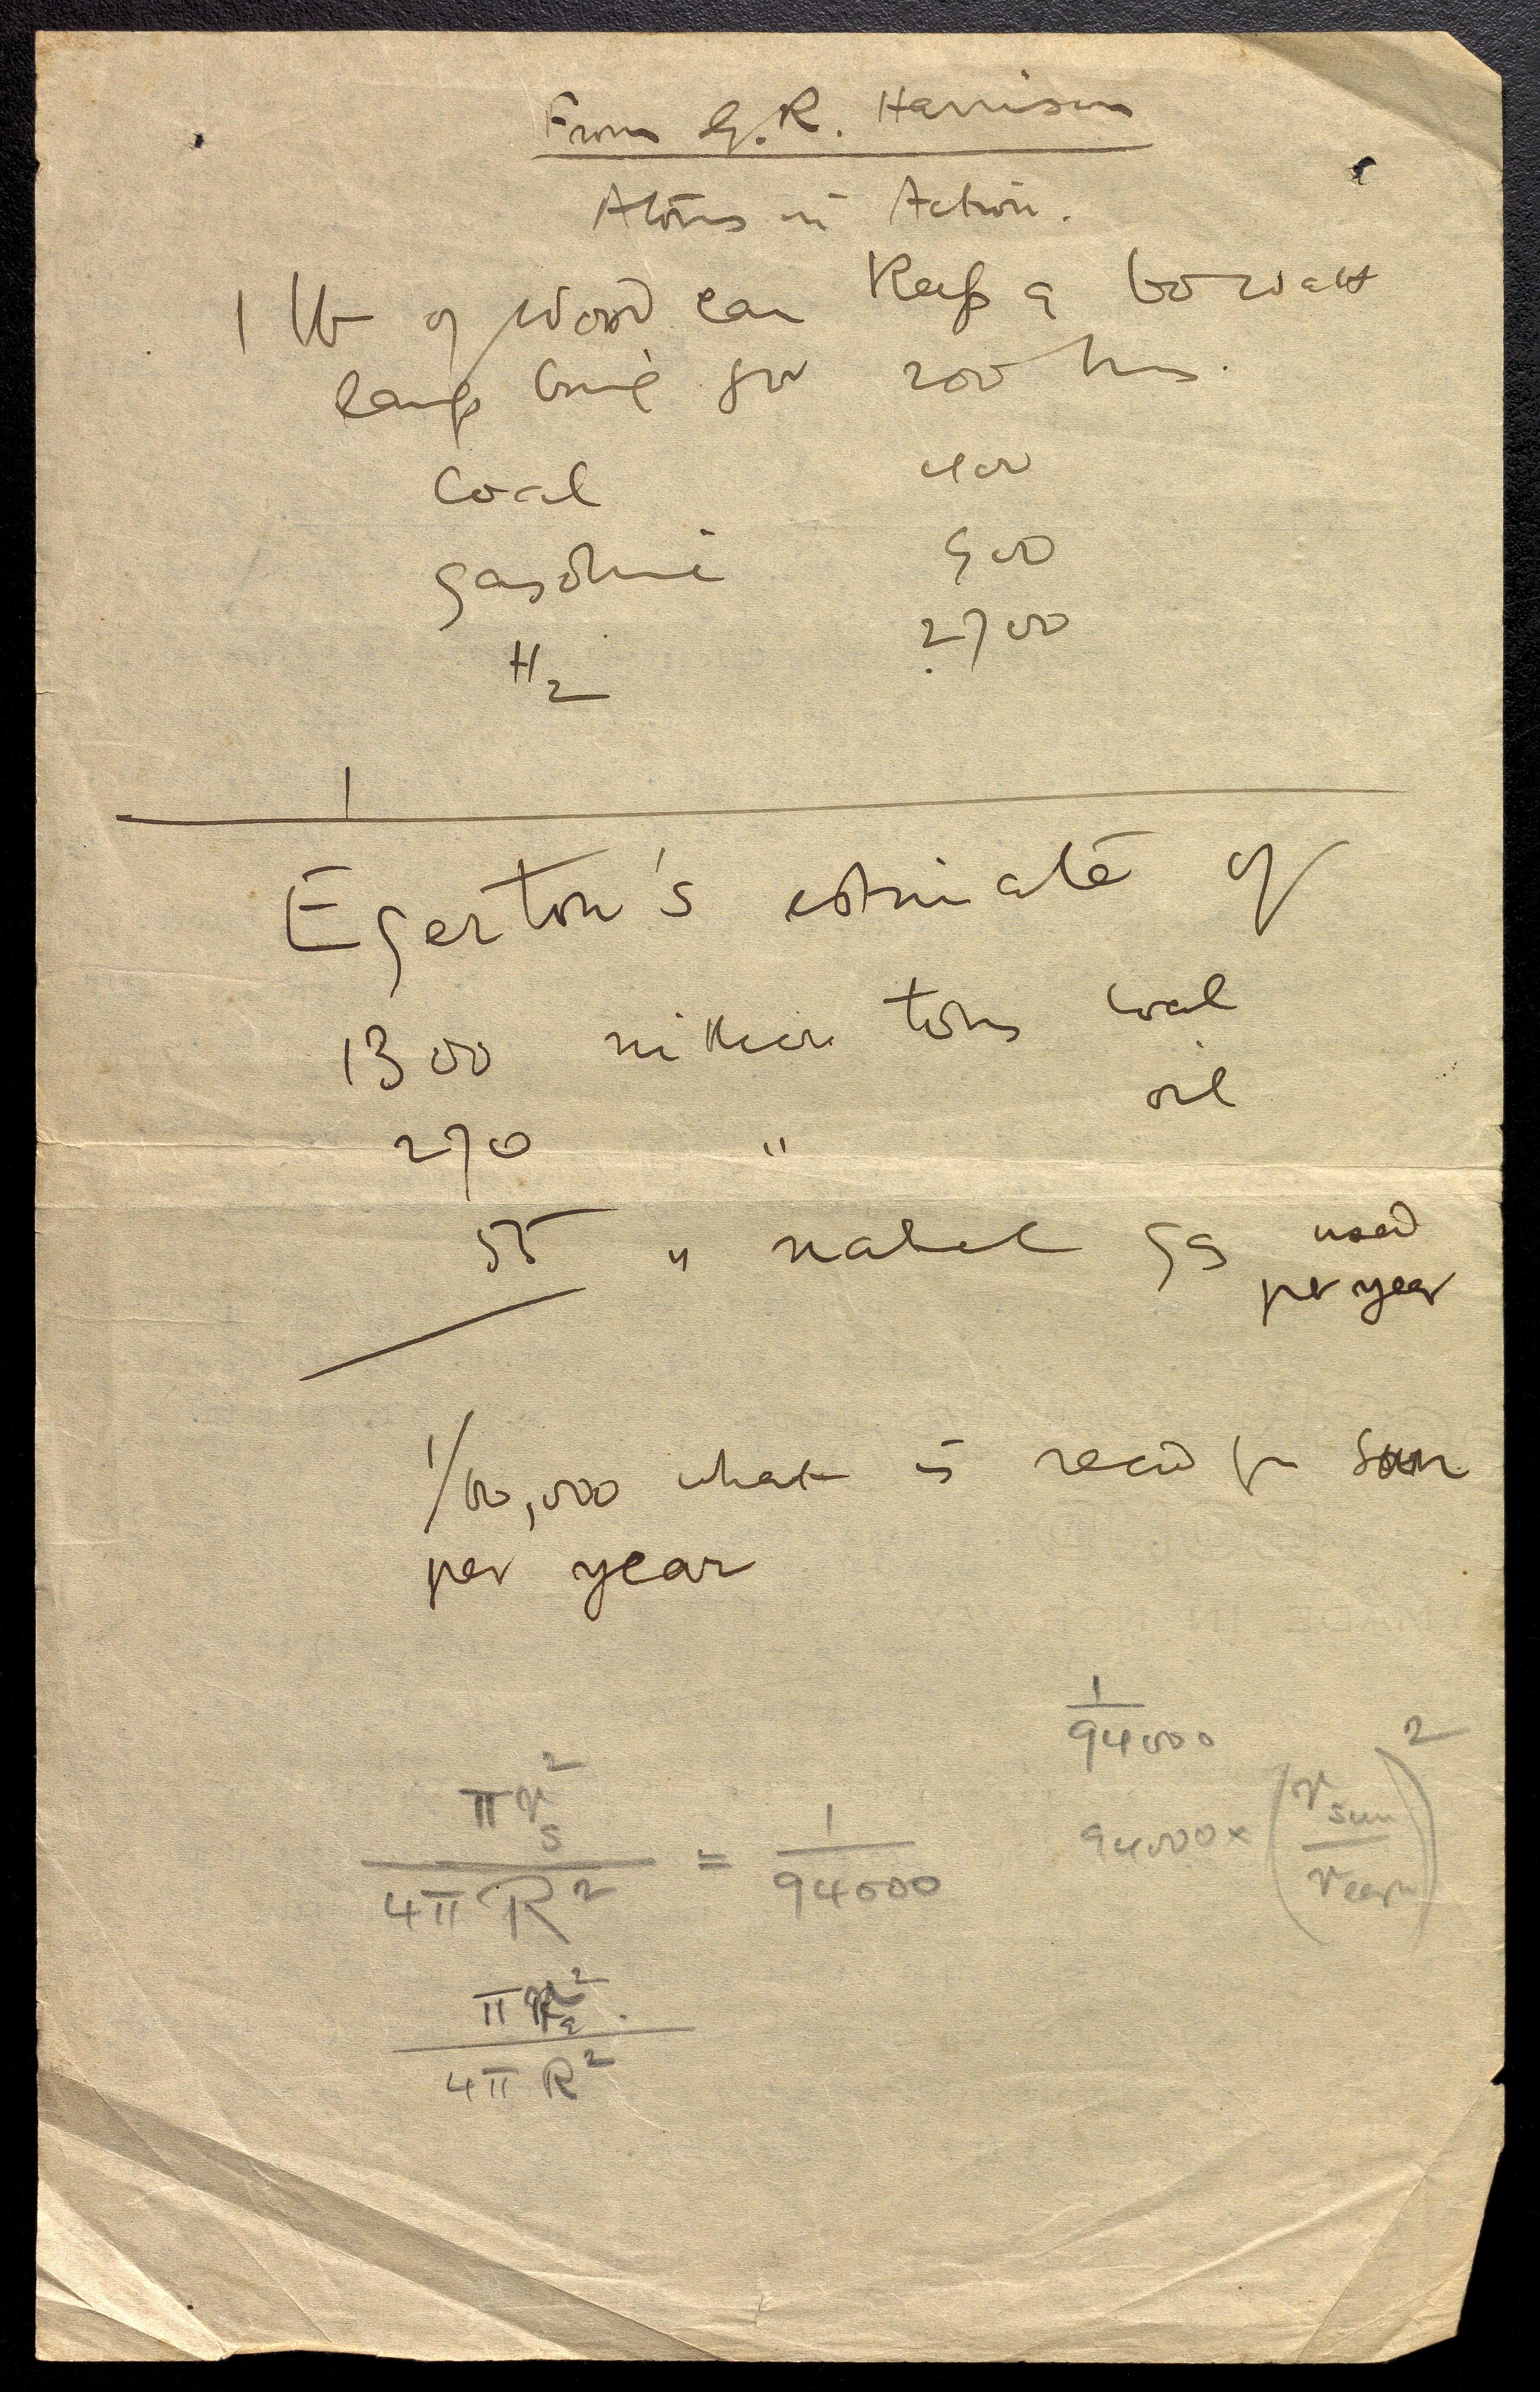 From G.R. Harrison
Atoms in Action.
1 lb of wood can keep a 60 watt
lamp burning for 200 hrs.
coal 400
gasoline 900
H₂ 2700
1
Egerton's estimate of
1300 million tons coal
270 " oil
55 " natural gas used
per year
1/60,000 what is recd fm sun
per year
1/94000
πr_s²/4πR² = 1/94000
94000 × (r_sun/r_earth)²
π .²/4πR²